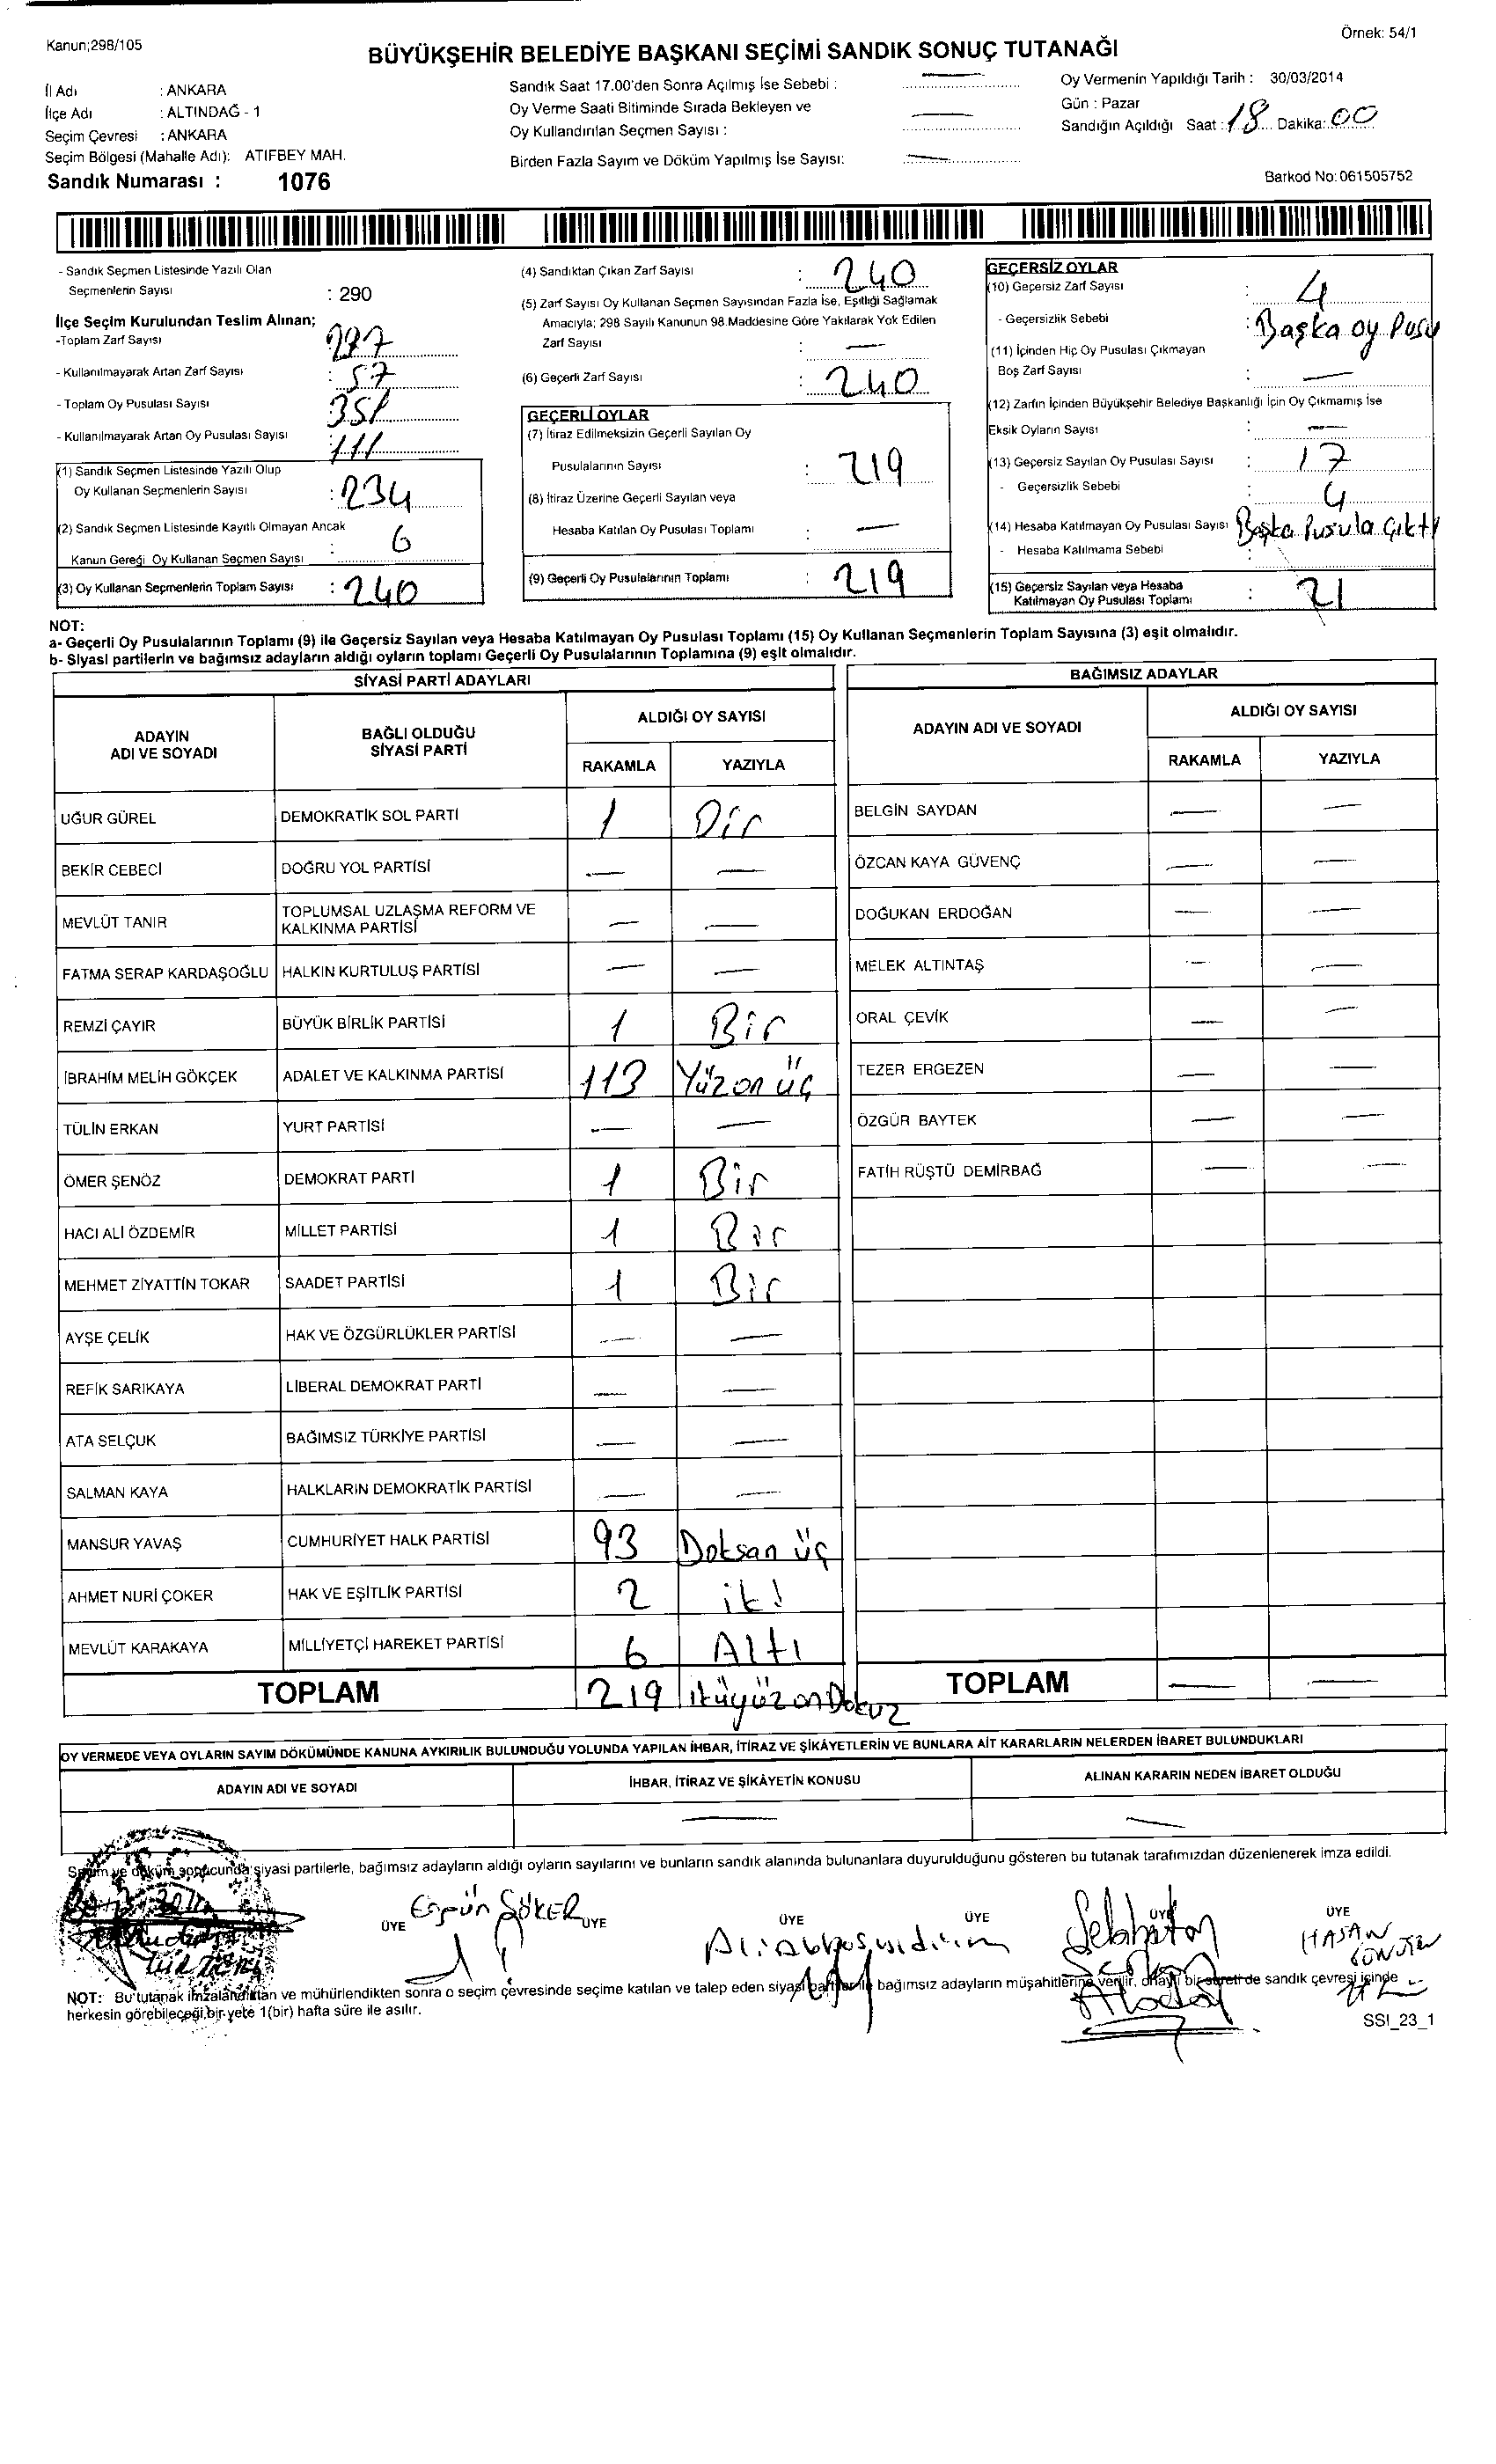 Kanun;298/105
Örnek: 54/1
BÜYÜKŞEHİR BELEDİYE BAŞKANI SEÇİMİ SANDIK SONUÇ TUTANAĞI
İl Adı : ANKARA
İlçe Adı : ALTINDAĞ - 1
Seçim Çevresi : ANKARA
Seçim Bölgesi (Mahalle Adı): ATIFBEY MAH.
Sandık Numarası : 1076
Sandık Saat 17.00'den Sonra Açılmış İse Sebebi : —
Oy Verme Saati Bitiminde Sırada Bekleyen ve
Oy Kullandırılan Seçmen Sayısı : —
Birden Fazla Sayım ve Döküm Yapılmış İse Sayısı: —
Oy Vermenin Yapıldığı Tarih : 30/03/2014
Gün : Pazar
Sandığın Açıldığı Saat : 18 Dakika: 00
Barkod No:061505752
- Sandık Seçmen Listesinde Yazılı Olan
Seçmenlerin Sayısı : 290
İlçe Seçim Kurulundan Teslim Alınan;
-Toplam Zarf Sayısı 297
- Kullanılmayarak Artan Zarf Sayısı : 57
- Toplam Oy Pusulası Sayısı 351
- Kullanılmayarak Artan Oy Pusulası Sayısı : 111
(1) Sandık Seçmen Listesinde Yazılı Olup
Oy Kullanan Seçmenlerin Sayısı : 234
(2) Sandık Seçmen Listesinde Kayıtlı Olmayan Ancak
Kanun Gereği Oy Kullanan Seçmen Sayısı : 6
(3) Oy Kullanan Seçmenlerin Toplam Sayısı : 240
(4) Sandıktan Çıkan Zarf Sayısı : 240
(5) Zarf Sayısı Oy Kullanan Seçmen Sayısından Fazla İse, Eşitliği Sağlamak
Amacıyla; 298 Sayılı Kanunun 98.Maddesine Göre Yakılarak Yok Edilen
Zarf Sayısı : —
(6) Geçerli Zarf Sayısı : 240
GEÇERLİ OYLAR
(7) İtiraz Edilmeksizin Geçerli Sayılan Oy
Pusulalarının Sayısı : 219
(8) İtiraz Üzerine Geçerli Sayılan veya
Hesaba Katılan Oy Pusulası Toplamı : —
(9) Geçerli Oy Pusulalarının Toplamı : 219
GEÇERSİZ OYLAR
(10) Geçersiz Zarf Sayısı : 4
- Geçersizlik Sebebi : Başka oy Pusu
(11) İçinden Hiç Oy Pusulası Çıkmayan
Boş Zarf Sayısı : —
(12) Zarfın İçinden Büyükşehir Belediye Başkanlığı İçin Oy Çıkmamış İse
Eksik Oyların Sayısı : —
(13) Geçersiz Sayılan Oy Pusulası Sayısı : 17
- Geçersizlik Sebebi : 4
(14) Hesaba Katılmayan Oy Pusulası Sayısı Başka Pusula Çıktı
- Hesaba Katılmama Sebebi :
(15) Geçersiz Sayılan veya Hesaba
Katılmayan Oy Pusulası Toplamı : 21
NOT:
a- Geçerli Oy Pusulalarının Toplamı (9) ile Geçersiz Sayılan veya Hesaba Katılmayan Oy Pusulası Toplamı (15) Oy Kullanan Seçmenlerin Toplam Sayısına (3) eşit olmalıdır.
b- Siyasi partilerin ve bağımsız adayların aldığı oyların toplamı Geçerli Oy Pusulalarının Toplamına (9) eşit olmalıdır.
SİYASİ PARTİ ADAYLARI
ADAYIN ADI VE SOYADI BAĞLI OLDUĞU SİYASİ PARTİ ALDIĞI OY SAYISI
RAKAMLA YAZIYLA
UĞUR GÜREL DEMOKRATİK SOL PARTİ 1 Bir
BEKİR CEBECİ DOĞRU YOL PARTİSİ — —
MEVLÜT TANIR TOPLUMSAL UZLAŞMA REFORM VE KALKINMA PARTİSİ — —
FATMA SERAP KARDAŞOĞLU HALKIN KURTULUŞ PARTİSİ — —
REMZİ ÇAYIR BÜYÜK BİRLİK PARTİSİ 1 Bir
İBRAHİM MELİH GÖKÇEK ADALET VE KALKINMA PARTİSİ 113 Yüzon üç
TÜLİN ERKAN YURT PARTİSİ — —
ÖMER ŞENÖZ DEMOKRAT PARTİ 1 Bir
HACI ALİ ÖZDEMİR MİLLET PARTİSİ 1 Bir
MEHMET ZİYATTİN TOKAR SAADET PARTİSİ 1 Bir
AYŞE ÇELİK HAK VE ÖZGÜRLÜKLER PARTİSİ — —
REFİK SARIKAYA LİBERAL DEMOKRAT PARTİ — —
ATA SELÇUK BAĞIMSIZ TÜRKİYE PARTİSİ — —
SALMAN KAYA HALKLARIN DEMOKRATİK PARTİSİ — —
MANSUR YAVAŞ CUMHURİYET HALK PARTİSİ 93 Doksan üç
AHMET NURİ ÇOKER HAK VE EŞİTLİK PARTİSİ 2 iki
MEVLÜT KARAKAYA MİLLİYETÇİ HAREKET PARTİSİ 6 Altı
TOPLAM 219 ikiyüzonDokuz
BAĞIMSIZ ADAYLAR
ADAYIN ADI VE SOYADI ALDIĞI OY SAYISI
RAKAMLA YAZIYLA
BELGİN SAYDAN — —
ÖZCAN KAYA GÜVENÇ — —
DOĞUKAN ERDOĞAN — —
MELEK ALTINTAŞ — —
ORAL ÇEVİK — —
TEZER ERGEZEN — —
ÖZGÜR BAYTEK — —
FATİH RÜŞTÜ DEMİRBAĞ — —
TOPLAM — —
OY VERMEDE VEYA OYLARIN SAYIM DÖKÜMÜNDE KANUNA AYKIRILIK BULUNDUĞU YOLUNDA YAPILAN İHBAR, İTİRAZ VE ŞİKÂYETLERİN VE BUNLARA AİT KARARLARIN NELERDEN İBARET BULUNDUKLARI
ADAYIN ADI VE SOYADI İHBAR, İTİRAZ VE ŞİKÂYETİN KONUSU ALINAN KARARIN NEDEN İBARET OLDUĞU
— —
Sayım ve döküm sonucunda siyasi partilerle, bağımsız adayların aldığı oyların sayılarını ve bunların sandık alanında bulunanlara duyurulduğunu gösteren bu tutanak tarafımızdan düzenlenerek imza edildi.
ÜYE ÜYE ÜYE ÜYE ÜYE ÜYE
Ergün ŞÖKER
Selahattin
HASAN
NOT: Bu tutanak imzalandıktan ve mühürlendikten sonra o seçim çevresinde seçime katılan ve talep eden siyasi partiler ile bağımsız adayların müşahitlerine verilir, onaylı bir sureti de sandık çevresi içinde
herkesin görebileceği bir yere 1(bir) hafta süre ile asılır.
SSI_23_1